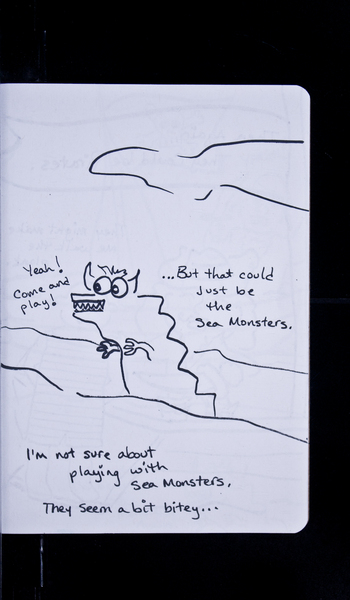 Yeah!
Come and
play!
...But that could
Just be
the
Sea Monsters.
I'm not sure about
playing with
Sea Monsters.
They seem a bit bitey...